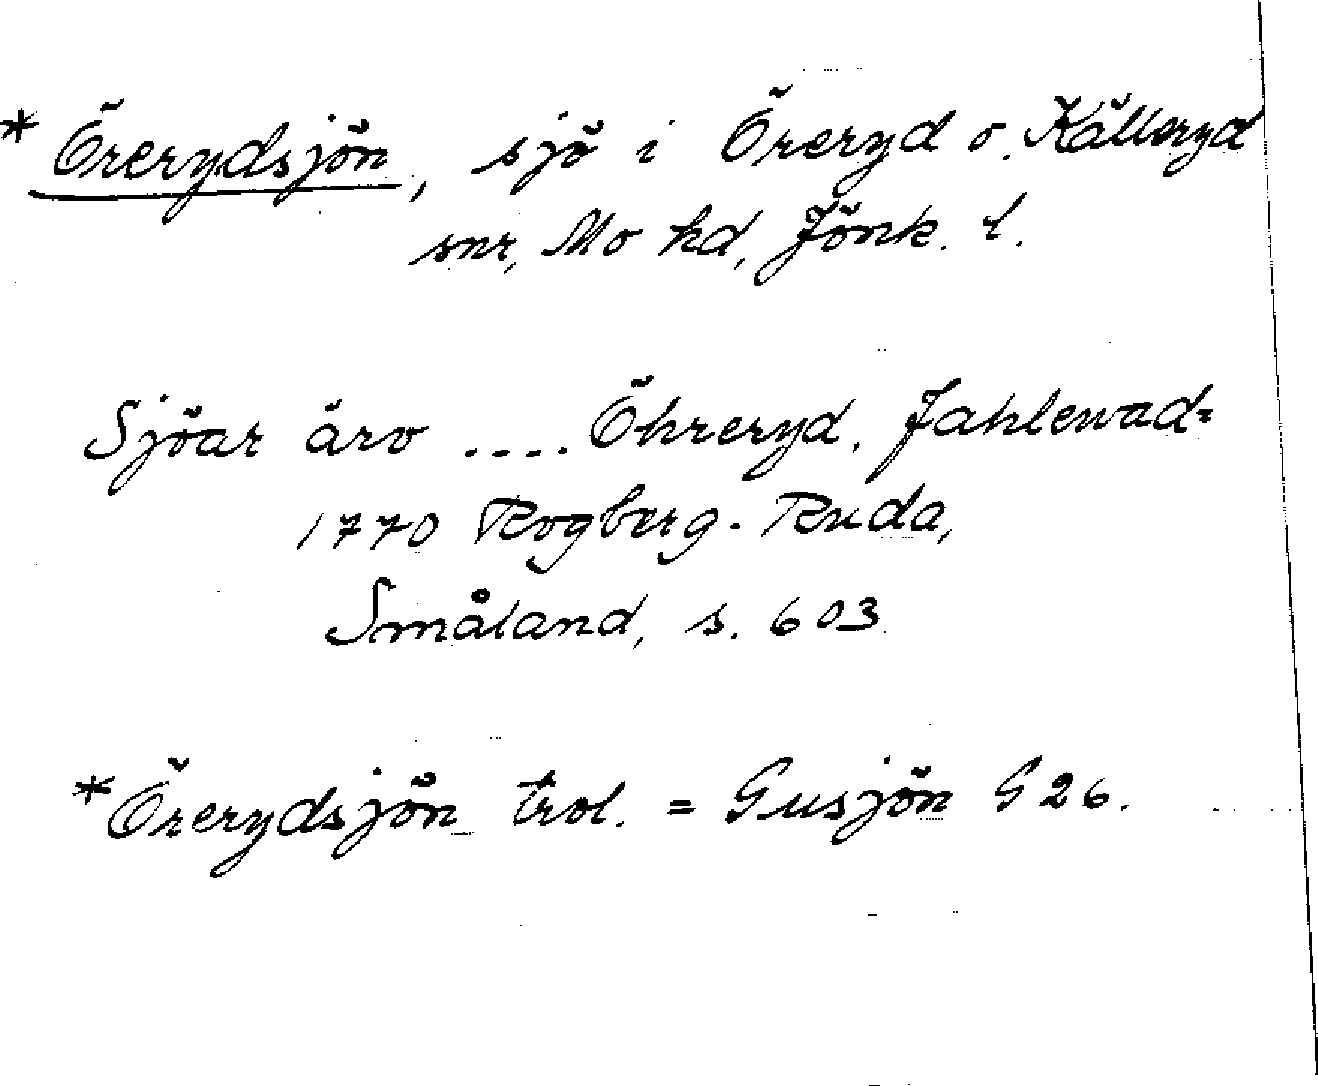 * Örerydsjön, sjö i Öreryd o. Källeryd
snr, Mo hd, Jönk. l.
Sjöar äro .... Öhreryd, Fahlewad=
1770 Rogberg-Ruda,
Småland, s. 603
*Örerydsjön trol. = Gusjön G 26.